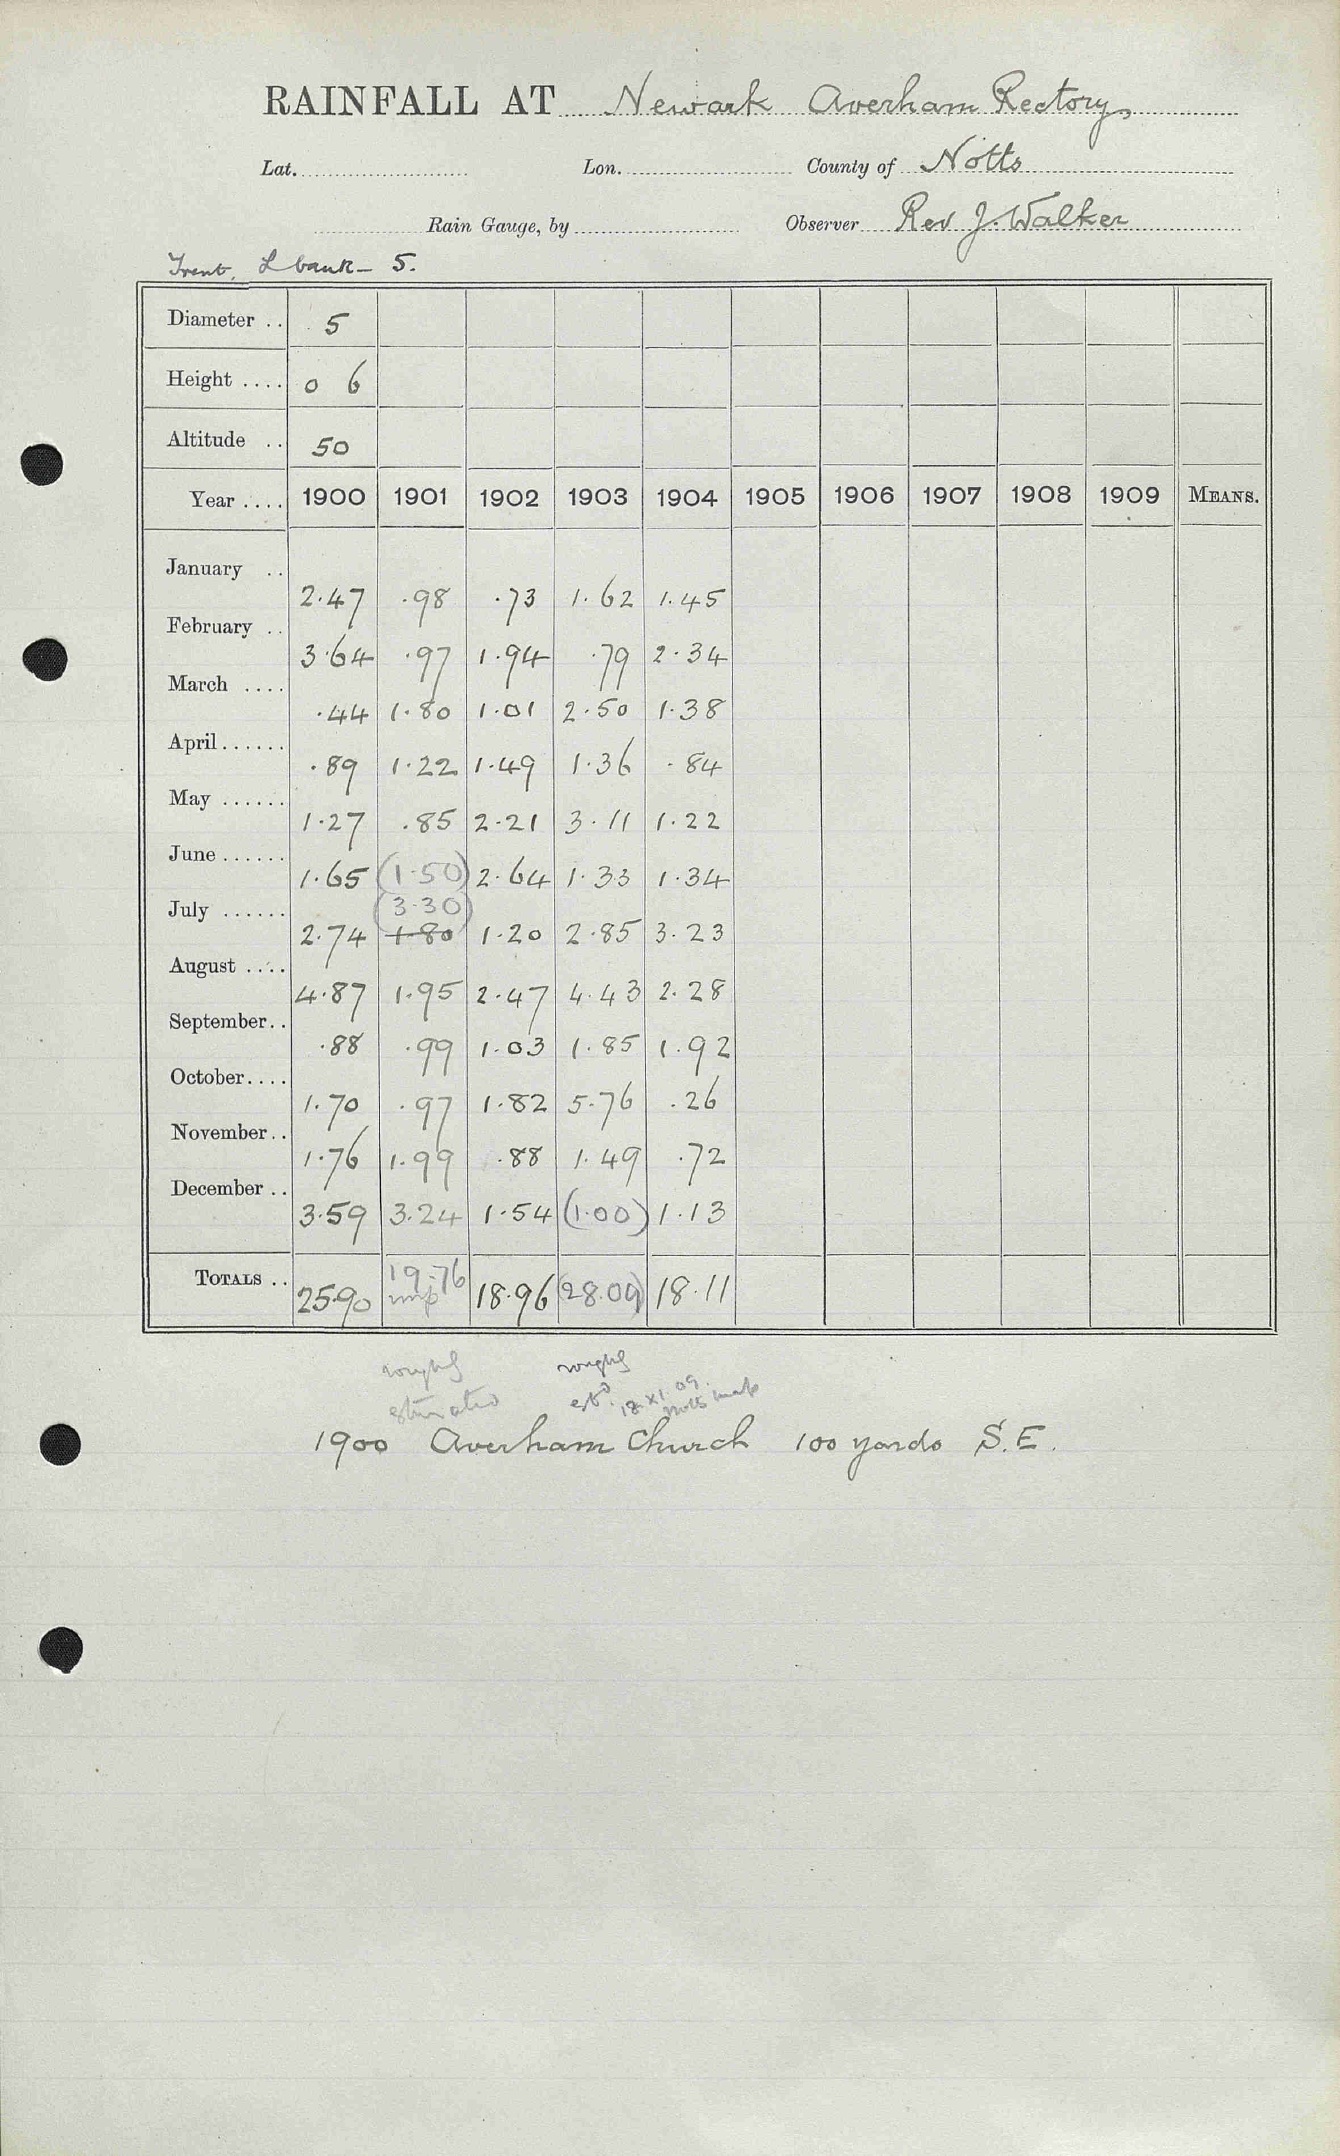 RAINFALL AT Newark Averham Rectory
Lat. Lon. County of Notts
Rain Gauge, by Observer Rev J. Walker
Trent. L bank - 5.
Diameter .. 5
Height .... 0 6
Altitude .. 50
Year .... 1900 1901 1902 1903 1904 1905 1906 1907 1908 1909 MEANS.
January .. 2.47 .98 .73 1.62 1.45
February .. 3.64 .97 1.94 .79 2.34
March .... .44 1.80 1.01 2.50 1.38
April...... .89 1.22 1.49 1.36 .84
May ...... 1.27 .85 2.21 3.11 1.22
June ...... 1.65 (1.50) 2.64 1.33 1.34
(3.30)
July ...... 2.74 1.80 1.20 2.85 3.23
August .... 4.87 1.95 2.47 4.43 2.28
September.. .88 .99 1.03 1.85 1.92
October.... 1.70 .97 1.82 5.76 .26
November.. 1.76 1.99 .88 1.49 .72
December .. 3.59 3.24 1.54 (1.00) 1.13
TOTALS .. 25.90 19.76 18.96 (28.09) 18.11
imp
roughly roughly
estimated estd. 18.XI.09. Notts map
1900 Averham Church 100 yards S.E.